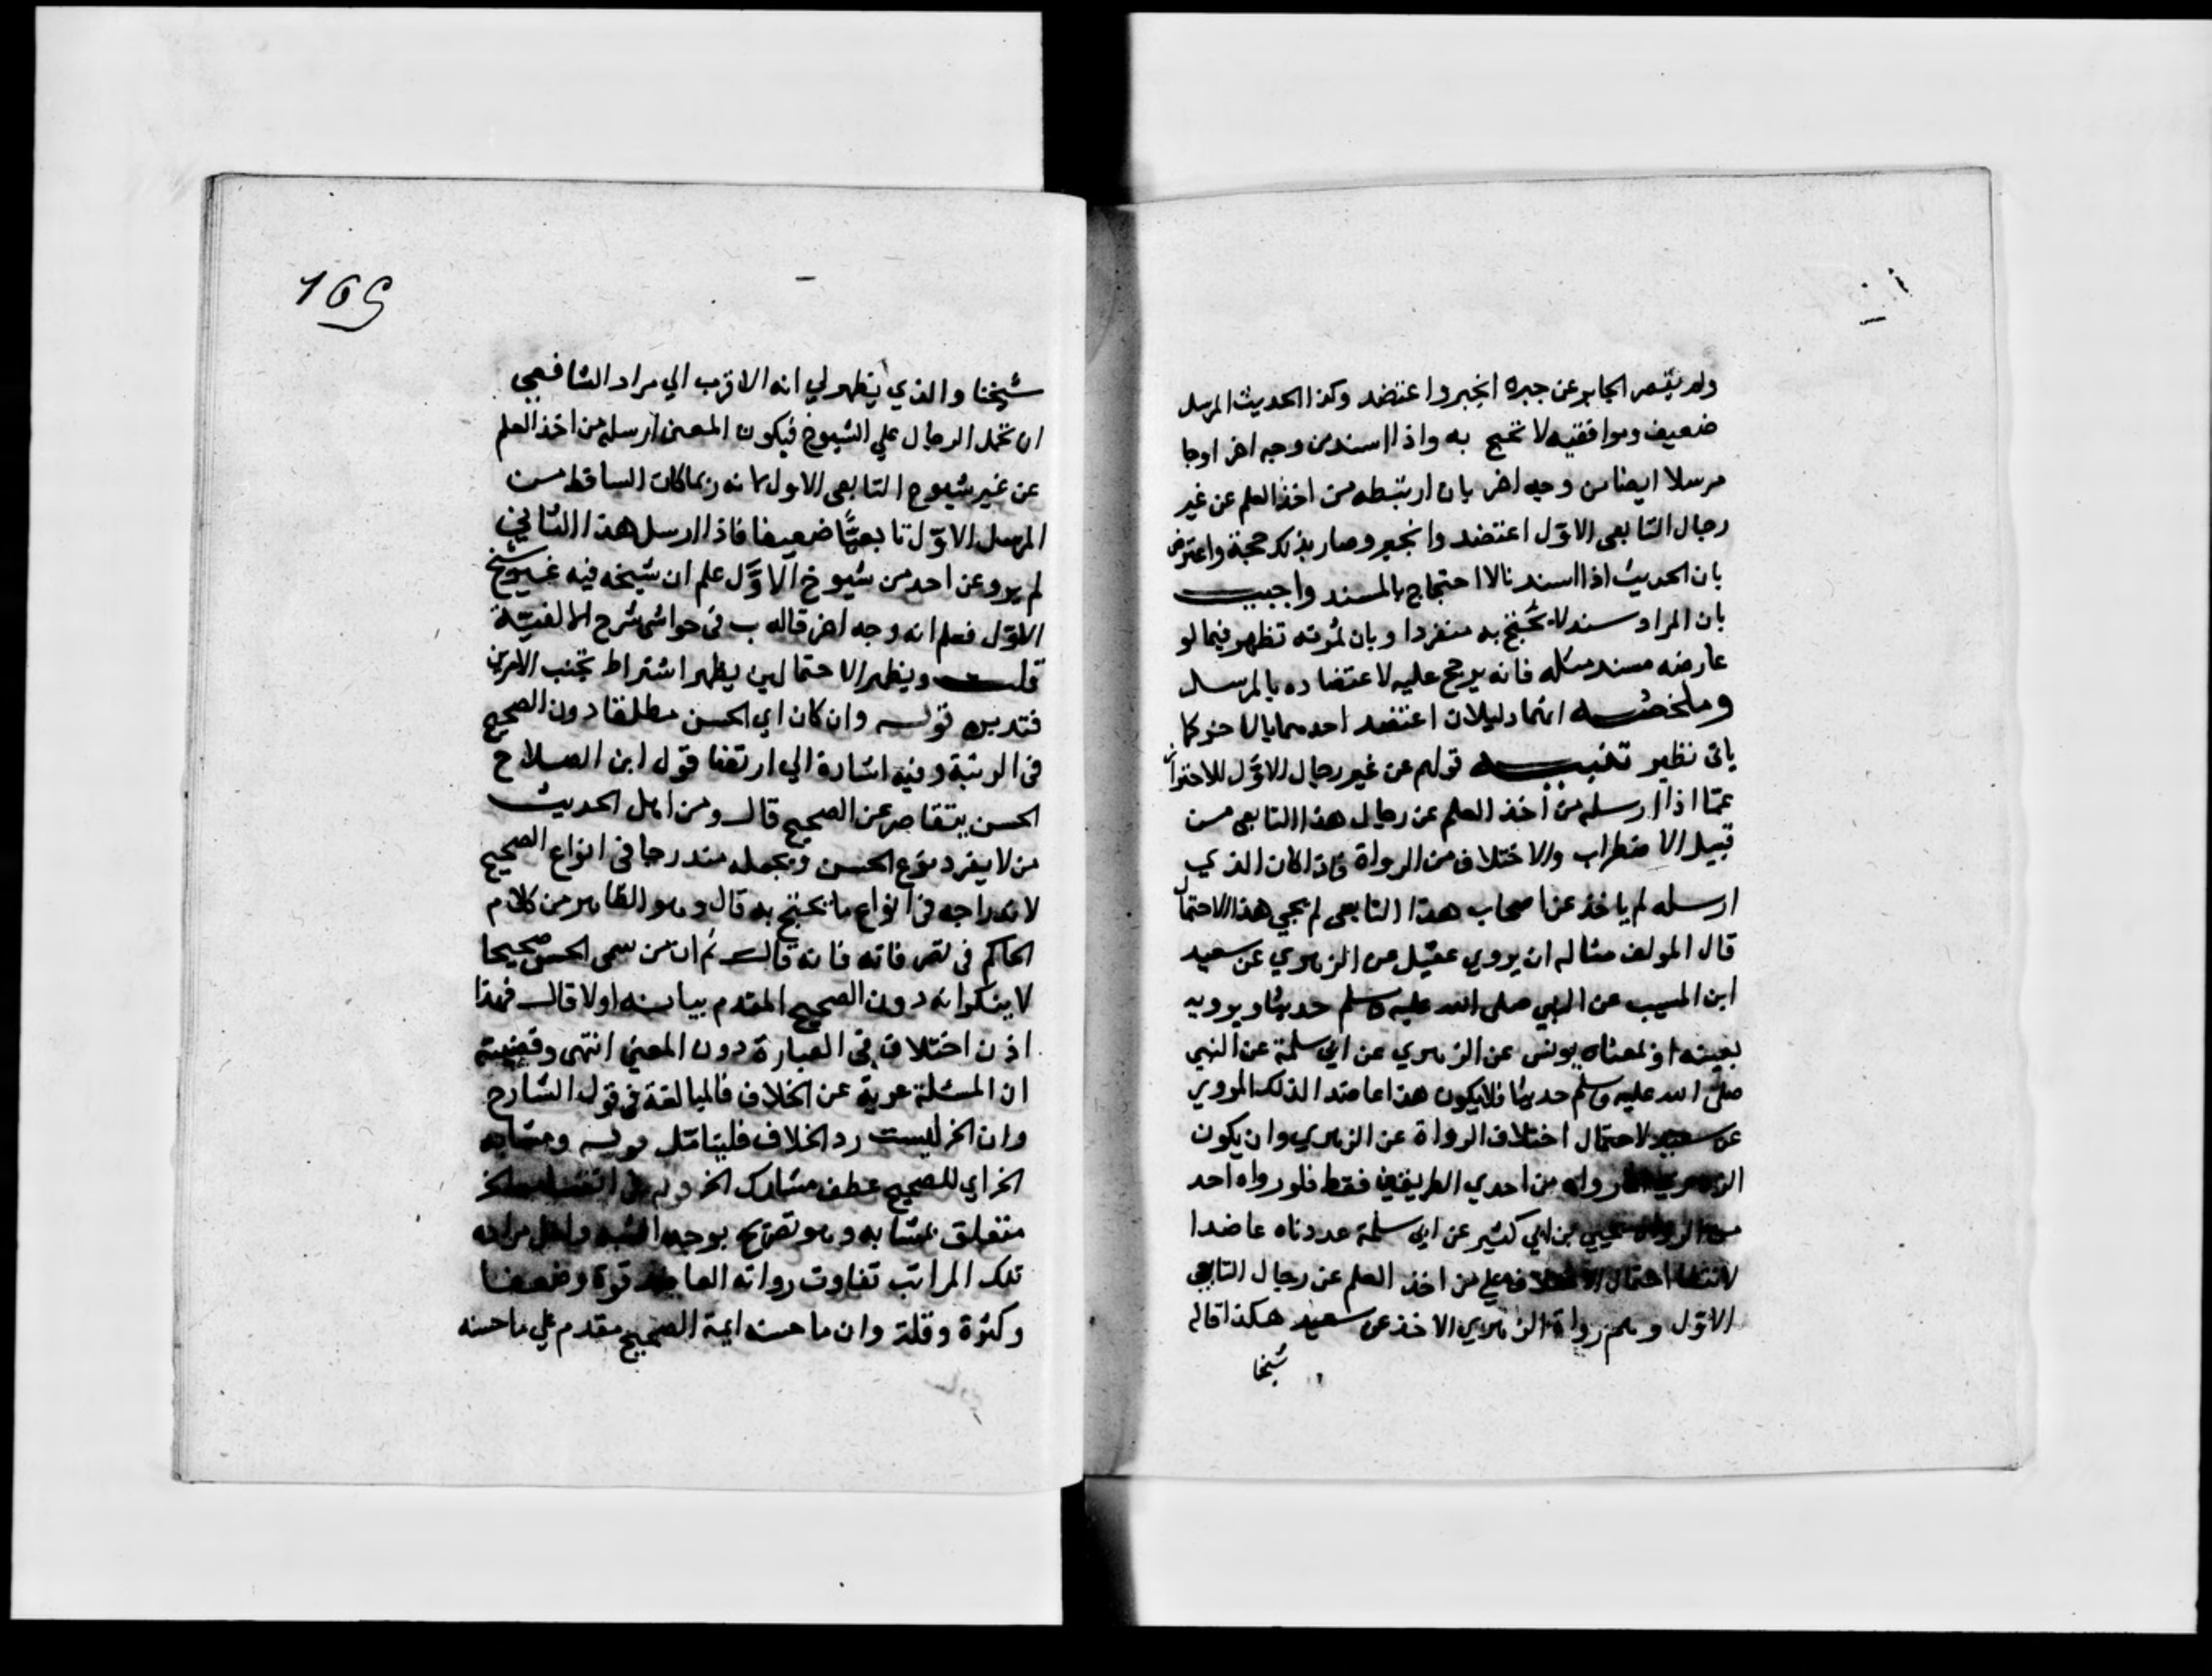 ولم يقصر الجابر عن جبره انجبر واعتضد وكذا الحديث المرسل
ضعيف وموافقيه لا تحتج به واذا اسند من وجه اخر اوجا
مرسلا ايضا من وجه اخر بان ارسله من اخذ العلم عن غير
رجال التابعى الاوّل اعتضد وانجبر وصار بذلك حجة واعترض
بان الحديث اذا اسند فالاحتجاج بالمسند واجيب
بان المراد سند لا يحتج به منفردا وبان ثمرته تظهر فيما لو
عارضه مسند مثله فانه يرجح عليه لاعتضاده بالمرسل
وملخصه انهما دليلان اعتضد احدهما بالاخر كما
ياتى نظير تنبيه قولهم عن غير رجال الاوّل للاحتراز
عمّا اذا ارسله من أخذ العلم عن رجال هذا التابعى من
قبيل الاضطراب والاختلاف من الرواة فاذا كان الذي
ارسله لم ياخذ عن اصحاب هذا التابعى لم يجي هذا الاحتمال
قال المولف مثاله ان يروي عقيل عن الزهري عن سعيد
ابن المسيب عن النبي صلى الله عليه وسلم حديثا ويرويه
بعينه او بمعناه يونس عن الزهري عن ابي سلمة عن النبي
صلى الله عليه وسلم حديثا فلا يكون هذا عاضدا لذلك المروي
عن سعيد لاحتمال اختلاف الرواة عن الزهري وان يكون
الزهري رواه من احدي الطريقين فقط فلو رواه احد
من الرواة عن يحيي بن ابي كثير عن ابي سلمة عددناه عاضدا
لانتفا احتمال الاختلاف علي من اخذ العلم عن رجال التابعي
الاوّل وهم رواة الزهري الاخذ عن سعيد هكذا قاله
شيخنا
169
شيخنا والذي يظهر لي انه الاقرب الي مراد الشافعي
ان تحمل الرجال علي الشيوخ فيكون المعنى ارسله من اخذ العلم
عن غير شيوخ التابعى الاول لانه ربما كان الساقط من
المرسل الاوّل تابعيًّا ضعيفا فاذا ارسل هذا الثاني
لم يرو عن احد من شيوخ الاوّل علم ان شيخه فيه غير شيخ
الاوّل فعلم انه وجه اخر قاله ب فى حواشى شرح الالفية
قلت ويظهر الاحتمالين يظهر اشتراط تجنب الامرين
فتدبره قوله وان كان اي الحسن مطلقا دون الصحيح
فى الرتبة وفيه اشارة الي ارتضا قول ابن الصلاح
الحسن يتقاصر عن الصحيح قال ومن اهل الحديث
من لا يفرد نوع الحسن ويجعله مندرجا فى انواع الصحيح
لاندراجه فى انواع ما يحتج به قال وهو الظاهر من كلام
الحاكم فى تصرفاته فانه قال ثم ان من سمى الحسن صحيحا
لا ينكر انه دون الصحيح المقدم بيانه اولا قال فهذا
اذن اختلاف فى العبارة دون المعني انتهى وقضيته
ان المسئلة عرية عن الخلاف فالمبالغة فى قول الشارح
وان الخ ليست رد الخلاف فليتامّل قوله ومشابه
الخ اي للصحيح عطف مشارك الخ
متعلق بمشابه وهو تصريح بوجه الشبه
تلك المراتب تفاوت رواته قوة وضعفا
وكثرة وقلة وان ما حسنه ايمة الصحيح مقدم علي ما حسنه